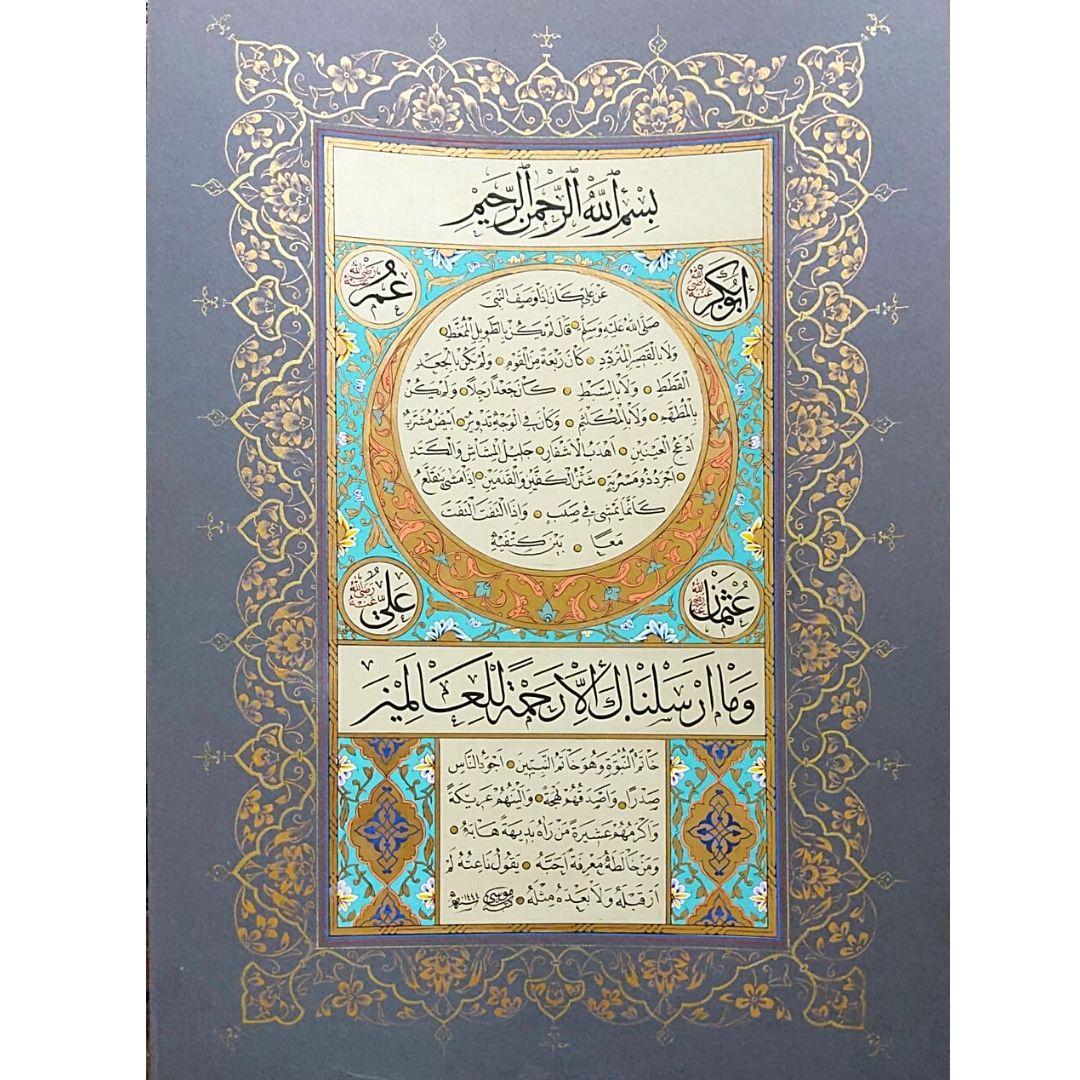 بِسْمِ اللّٰهِ الرَّحْمٰنِ الرَّحِيْمِ
ابُوبَكْرٍ رَضِىَ اللّٰهُ عَنْهُ
عُمَرُ رَضِىَ اللّٰهُ عَنْهُ
عَنْ عَلِىٍّ كَانَ اِذَا وَصَفَ النَّبِىَّ
صَلَّى اللّٰهُ عَلَيْهِ وَسَلَّمَ قَالَ لَمْ يَكُنْ بِالطَّوِيلِ الْمُمَّغِطِ
وَلَا بِالْقَصِيرِ الْمُتَرَدِّدِ كَانَ رَبْعَةً مِنَ الْقَوْمِ وَلَمْ يَكُنْ بِالْجَعْدِ
الْقَطَطِ وَلَا بِالسَّبِطِ كَانَ جَعْدًا رَجِلًا وَلَمْ يَكُنْ
بِالْمُطَهَّمِ وَلَا بِالْمُكَلْثَمِ وَكَانَ فِى الْوَجْهِ تَدْوِيرٌ اَبْيَضُ مُشْرَبٌ
اَدْعَجُ الْعَيْنَيْنِ اَهْدَبُ الْاَشْفَارِ جَلِيلُ الْمُشَاشِ وَالْكَتَدِ
اَجْرَدُ ذُو مَسْرُبَةٍ شَثْنُ الْكَفَّيْنِ وَالْقَدَمَيْنِ اِذَا مَشٰى يَتَقَلَّعُ
كَاَنَّمَا يَمْشِى فِى صَبَبٍ وَاِذَا الْتَفَتَ الْتَفَتَ
مَعًا بَيْنَ كَتِفَيْهِ
عُثْمَانُ رَضِىَ اللّٰهُ عَنْهُ
عَلِىٌّ رَضِىَ اللّٰهُ عَنْهُ
وَمَا اَرْسَلْنَاكَ اِلَّا رَحْمَةً لِلْعَالَمِينَ
خَاتَمُ النُّبُوَّةِ وَهُوَ خَاتَمُ النَّبِيِّينَ اَجْوَدُ النَّاسِ
صَدْرًا وَاَصْدَقُهُمْ لَهْجَةً وَاَلْيَنُهُمْ عَرِيكَةً
وَاَكْرَمُهُمْ عَشِيرَةً مَنْ رَاٰهُ بَدِيهَةً هَابَهُ
وَمَنْ خَالَطَهُ مَعْرِفَةً اَحَبَّهُ يَقُولُ نَاعِتُهُ لَمْ
اَرَ قَبْلَهُ وَلَا بَعْدَهُ مِثْلَهُ